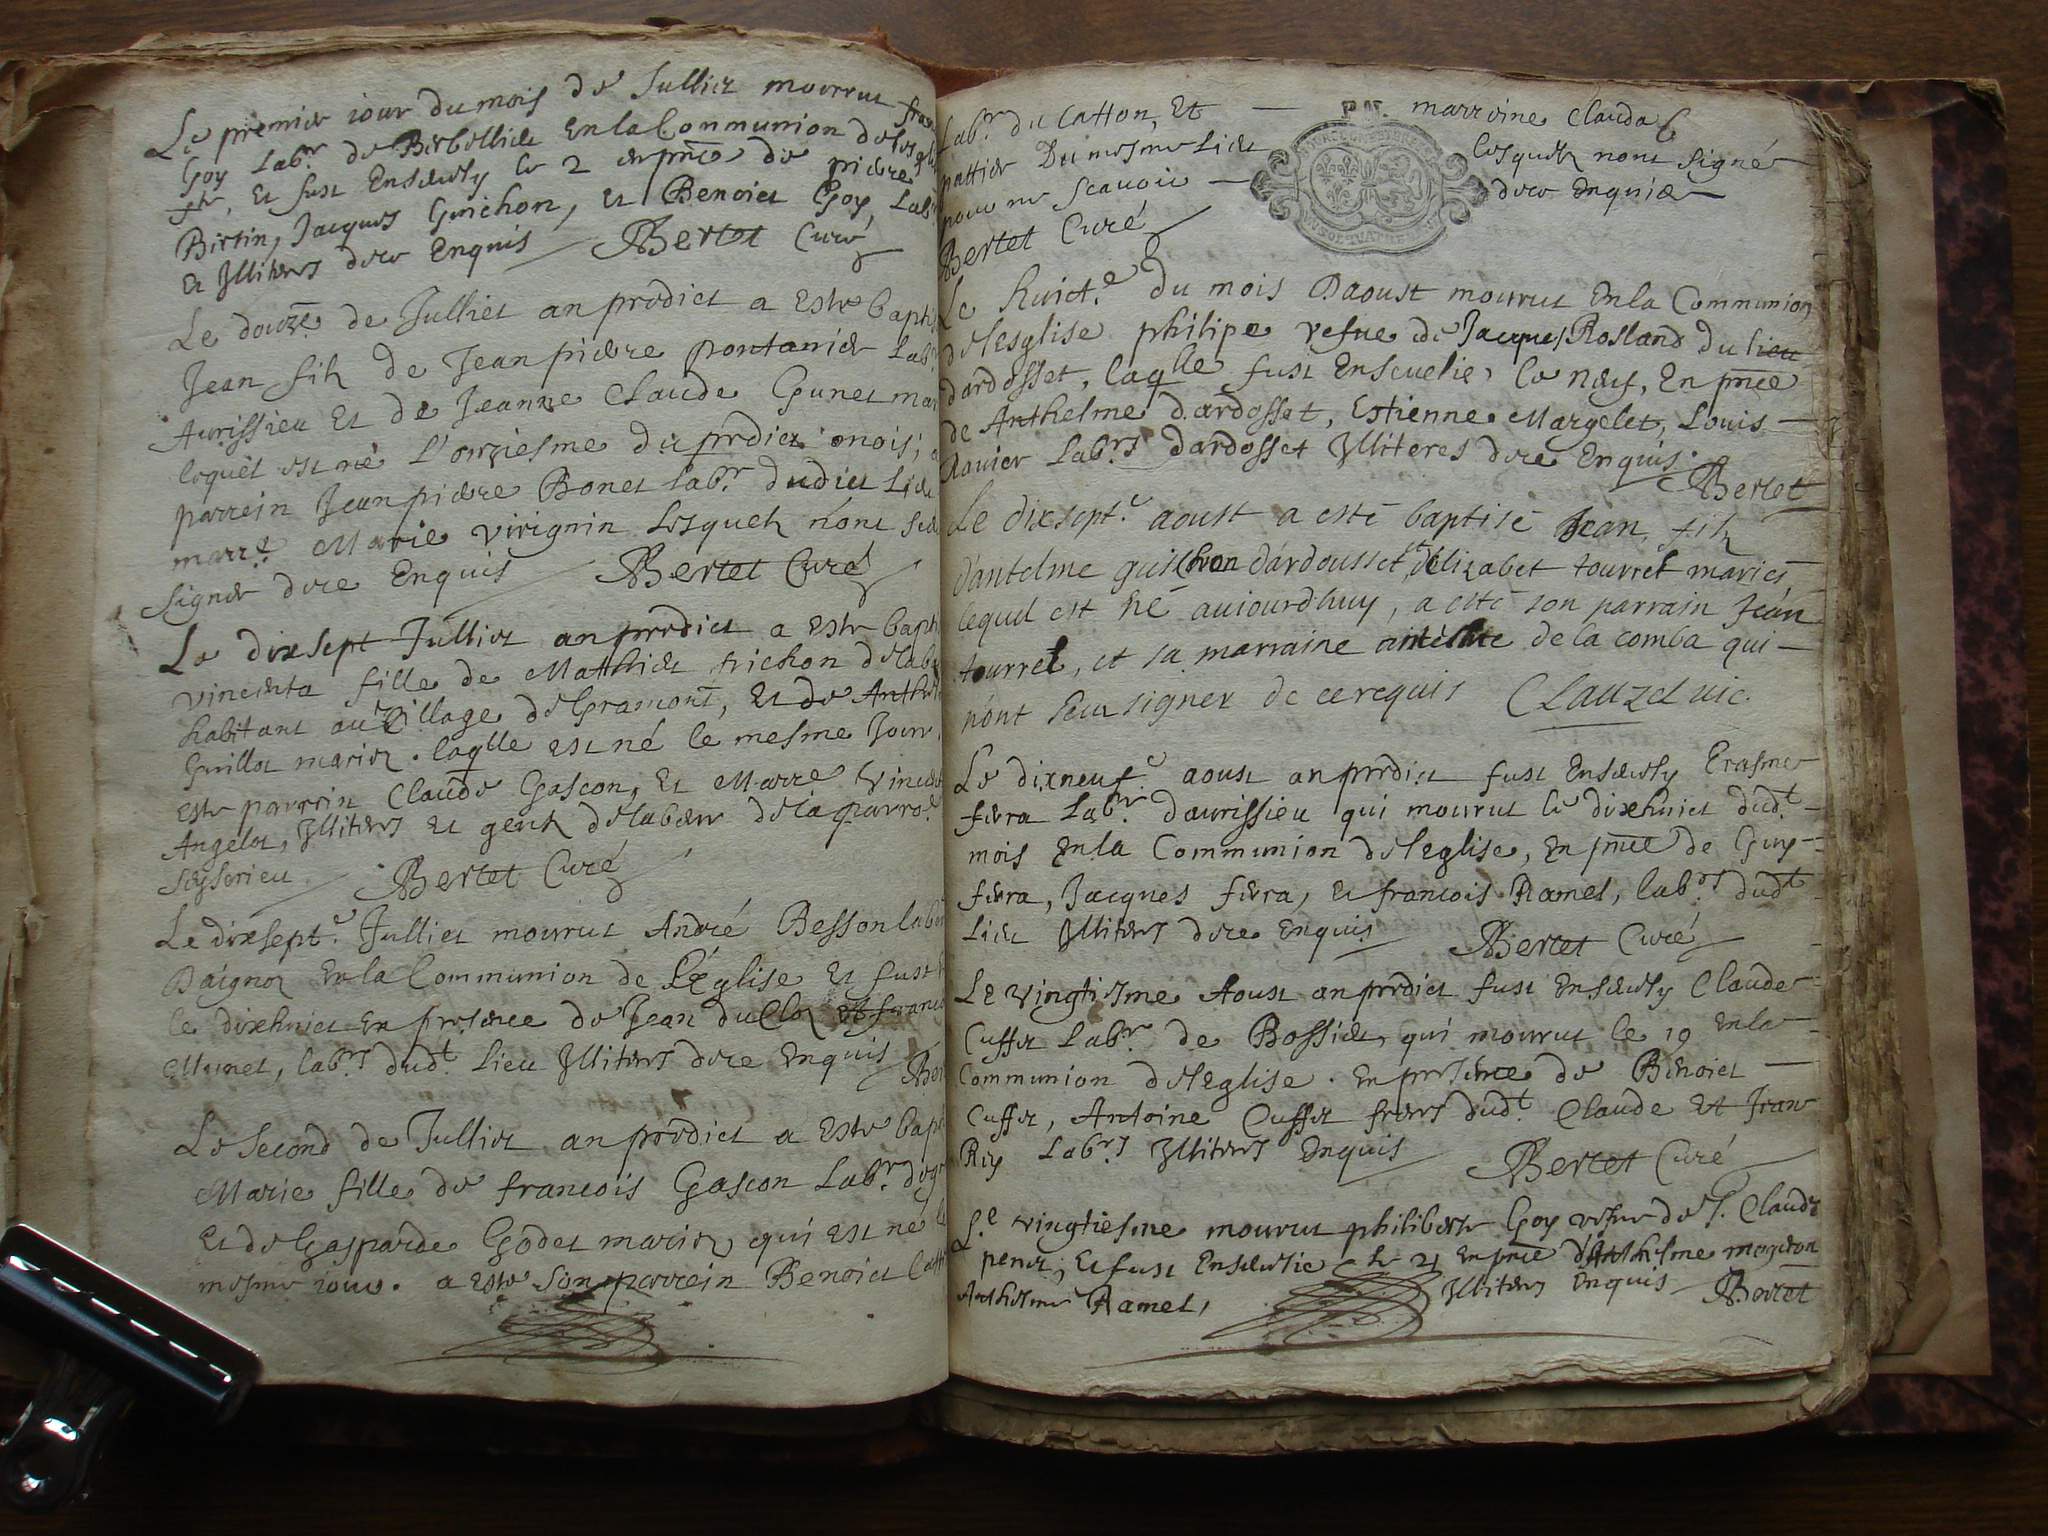 Le premier iour du mois de Julliet mourrut
Goy Lab.r de Berbellieu En la Communion de
Et fust Enseuely le 2 en pnce de pierre
Birtin, Jacques Guichon, et Benoict Goy, Lab
Et Illiteres dere Enquis Bertet Curé
Le douze de Julliet an prédict a Esté bapt
Jean filz de Jean pierre pontanier Lab
Aurissieu Et de Jeanne Claude Gunet mar
lequel est né l'onziesme du prédict mois,
parrein Jean pierre Bonet Lab.r dudict Lieu
marr.e Marie virignin Lesquelz n'ont sceu
signer dere Enquis Bertet Curé
Le dixsept Julliet an prédict a Esté bapt
vincenta fille de Matthieu trichon
habitant au village de Gramont, Et de Anthel
Guillot mariez. laqlle est né le mesme Jour
Esté parrein Claude Gascon, Et Marre Vincen
Angelot, Illiteres Et gentz
Seyserieu Bertet Curé
Le dixsept.e Julliet mourrut André Besson Lab
Daignoz En la Communion de L'églize Et fust
le dixhuict En présence de Jean du Cloz et franco
Munet, lab.rs dud.t Lieu Illiteres dere Enquis
Le second de Julliet an prédict a Esté bapt
Marie fille de francois Gascon Lab.r
Et de Gasparde Godet mariez, qui est né
mesme iour. a Esté son parrein Benoict
Lab.r du Catton, Et marreine Clauda
pattier Du mesme Lieu Lesquelz nont signé
pour ne scauoir dere Enquis
Bertet Curé
Le huict.e du mois Daoust mourut En la Communion
de lesglise philipe vefue de Jacques Rosland du lieu
dardosset, laqlle fust Enseuelie, le neuf, En pnce
de Anthelme dardosset, Estienne Margelet, Louis
Rouier Lab.rs dardosset Illiteres dere Enquis. Bertet
Le dixsept.e aoust a esté baptisé Jean, filz
dantelme guichon dardousset et délizabet tourret mariés
lequel est né auiourdhuy, a esté son parrain Jean
tourret, et sa marraine de la comba qui
n'ont sceu signer de ce requis Clauzel vic.
Le dixneuf.e aoust an prédict fust Enseuely Erasme
fiura Lab.r daurissieu qui mourut le dixhuict dud.t
mois En la Communion de leglise, En pnce de Guy
fiura, Jacques fiura, et francois Ramel, lab.rs dud.t
Lieu Illiteres dere Enquis Bertet Curé
Le vingtiesme Aoust an prédict fust Enseuely Claude
Cuffet Lab.r de Bossieu, qui mourut le 19 En la
Communion de leglise. En présence de Benoict
Cuffet, Antoine Cuffet freres dud.t Claude Et Jean
Rey Lab.rs Illiteres Enquis Bertet Curé
Le vingtiesme mourut philiberte Goy vefue de Claude
penet, Et fust Enseuelie le 21 En pnce d'Anthelme
Anthelme Ramel, Illiteres Enquis Bertet